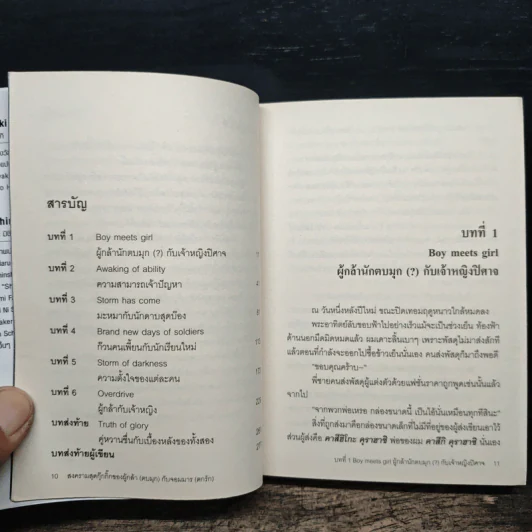 สารบัญ
บทที่ 1 Boy meets girl
ผู้กล้านักตบมุก (?) กับเจ้าหญิงปีศาจ
บทที่ 2 Awaking of ability
ความสามารถเจ้าปัญหา
บทที่ 3 Storm has come
มะหมากับนักดาบสุดบ๊อง
บทที่ 4 Brand new days of soldiers
ก๊วนคนเพี้ยนกับนักเรียนใหม่
บทที่ 5 Storm of darkness
ความตั้งใจของแต่ละคน
บทที่ 6 Overdrive
ผู้กล้ากับเจ้าหญิง
บทส่งท้าย Truth of glory
คู่หวานชื่นกับเบื้องหลังของทั้งสอง
บทส่งท้ายผู้เขียน
10 สงครามสุดกุ๊กกิ๊กของผู้กล้า (ตบมุก) กับจอมมาร (ตกรัก)
บทที่ 1
Boy meets girl
ผู้กล้านักตบมุก (?) กับเจ้าหญิงปีศาจ
ณ วันหนึ่งหลังปีใหม่ ขณะปิดเทอมฤดูหนาวใกล้หมดลง
พระอาทิตย์ลับขอบฟ้าไปอย่างเร็วแม้จะเป็นช่วงเย็น ท้องฟ้า
ด้านนอกมืดมิดหมดแล้ว ผมเดาะลิ้นเบาๆ เพราะพัสดุไม่มาส่งสักที
แล้วตอนที่กำลังจะออกไปซื้อข้าวเย็นนั่นเอง คนส่งพัสดุก็มาถึงพอดี
"ขอบคุณคร้าบ~"
พี่ชายคนส่งพัสดุผู้แต่งตัวด้วยแฟชั่นราคาถูกพูดเช่นนั้นแล้ว
จากไป
"จากพวกพ่อเหรอ กล่องขนาดนี้ เป็นไอ้นั่นเหมือนทุกทีสินะ"
สิ่งที่ถูกส่งมาคือกล่องขนาดเล็กที่ไม่มีที่อยู่ของผู้ส่งเขียนเอาไว้
ส่วนผู้ส่งคือ คุราฮาชิ พ่อของผม คุราฮาชิ นั่นเอง
บทที่ 1 Boy meets girl ผู้กล้านักตบมุก (?) กับเจ้าหญิงปีศาจ 11